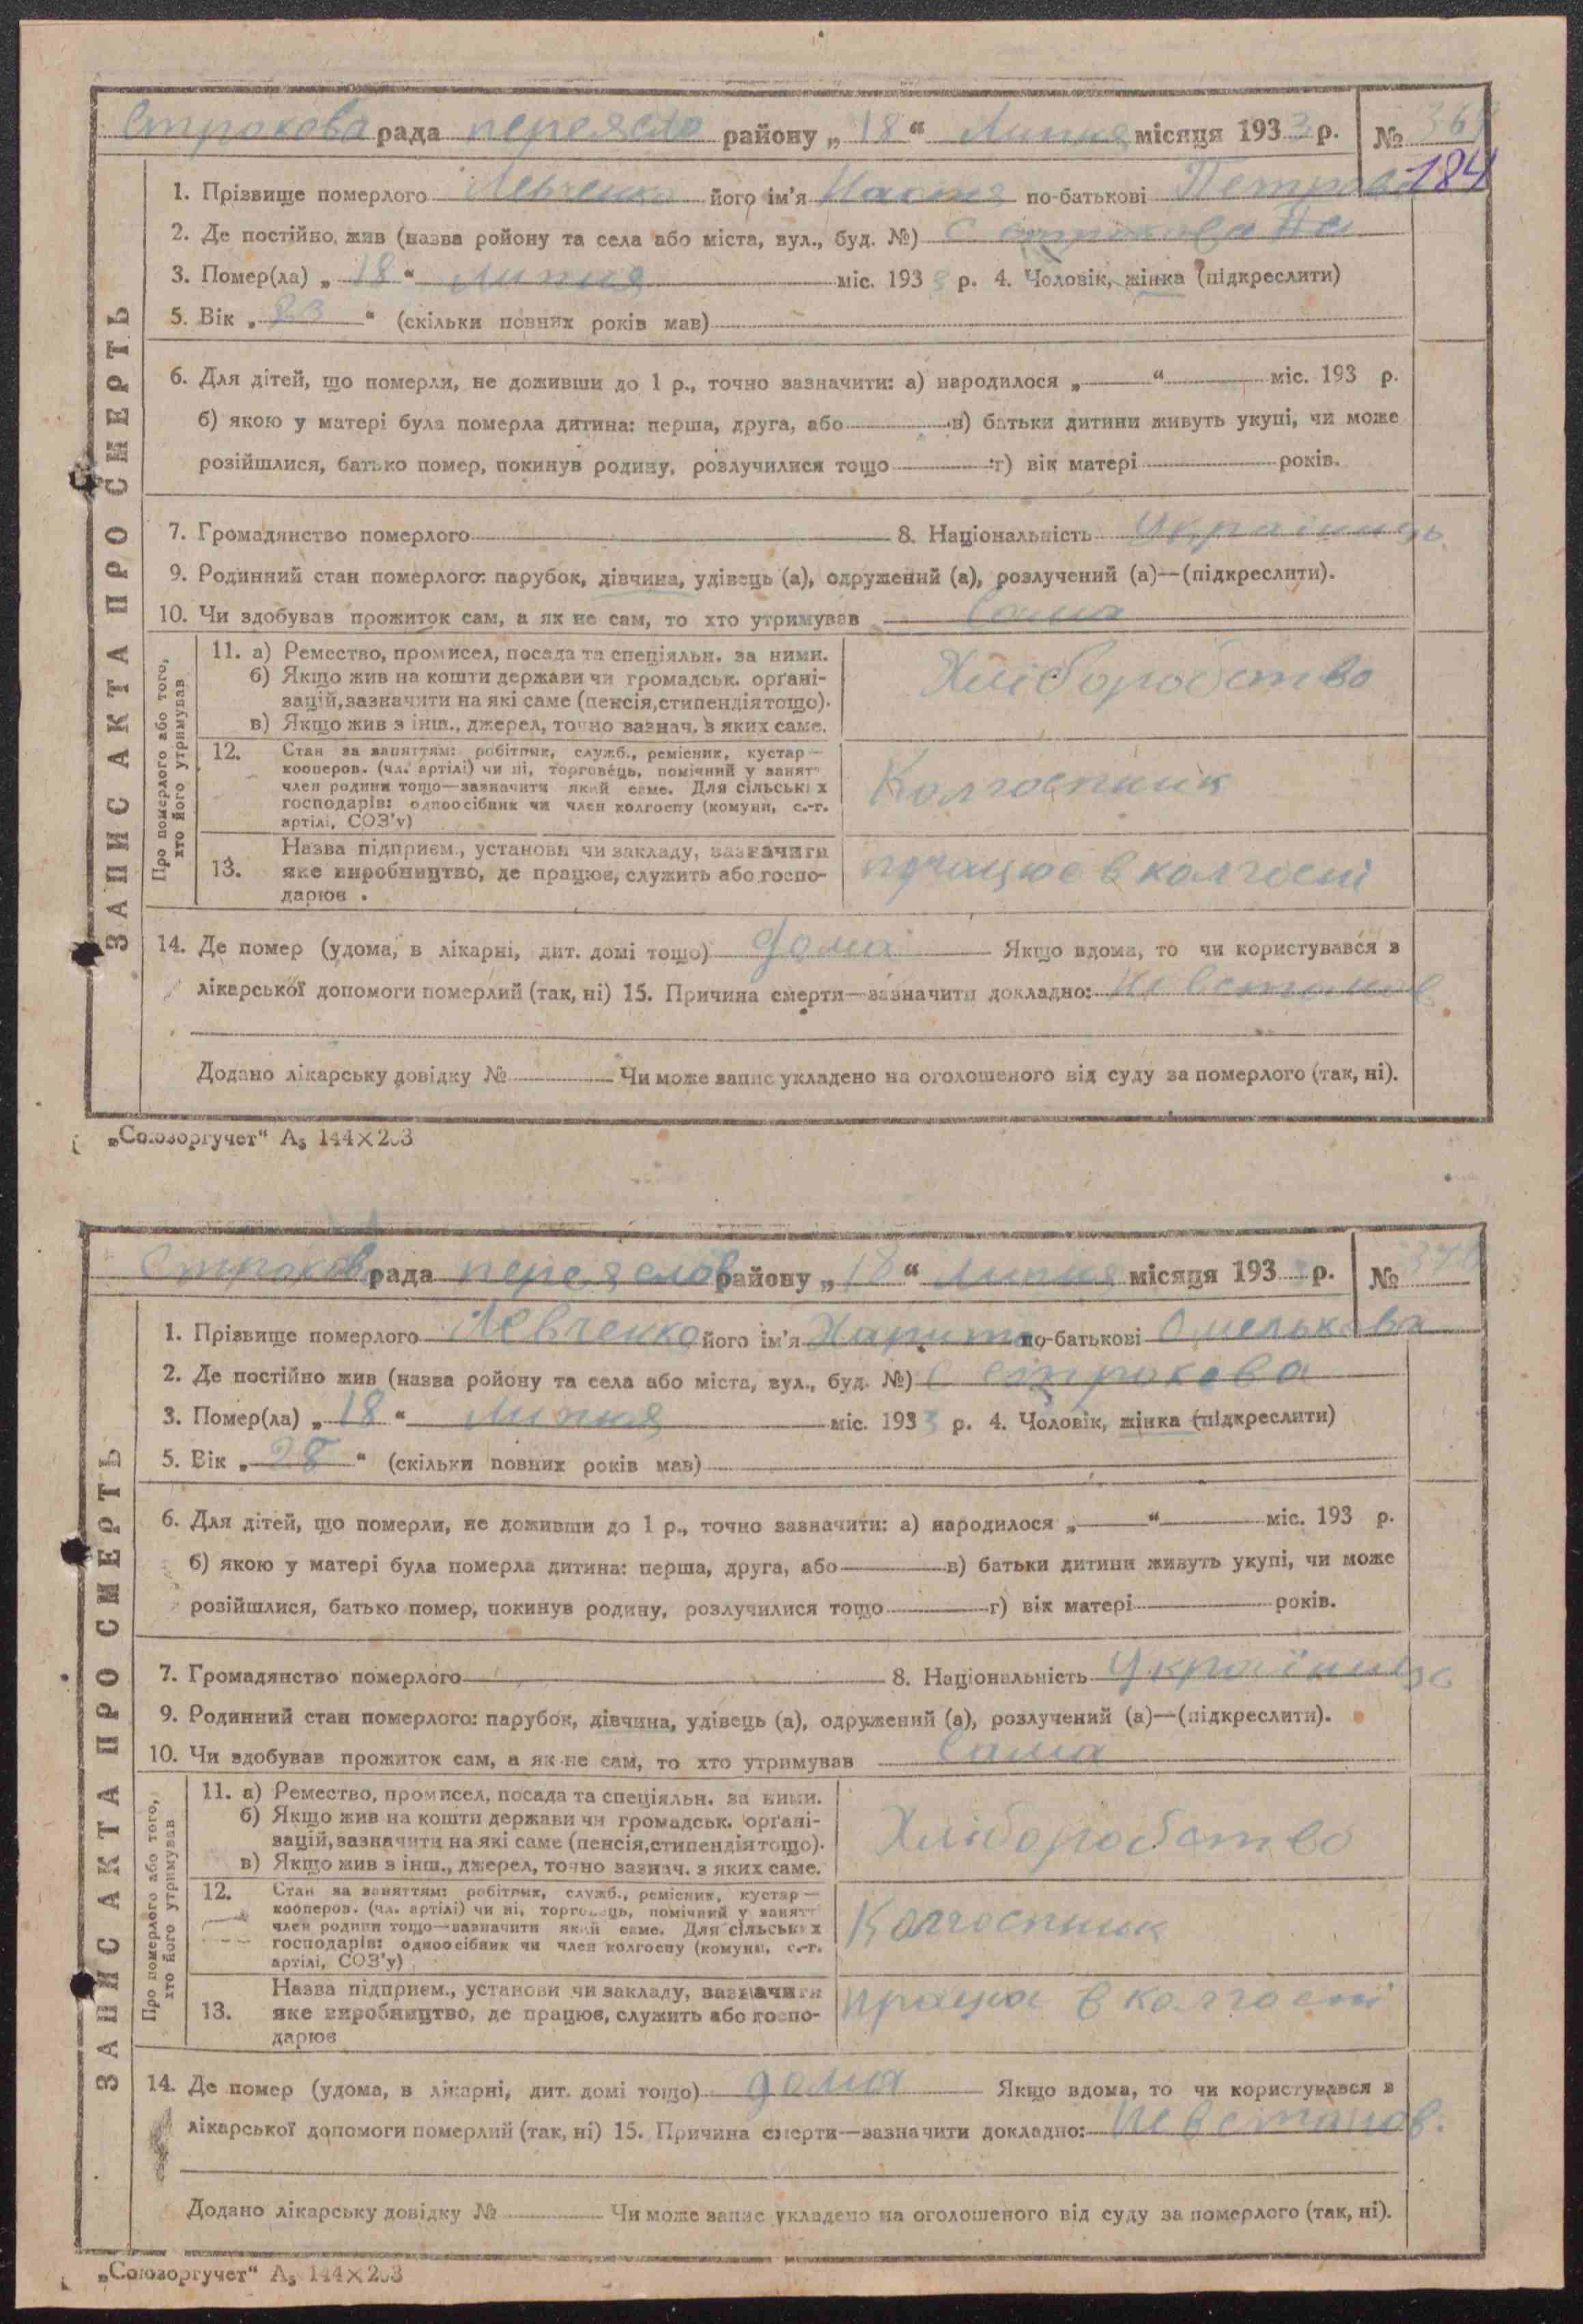 Строкова рада переясло району „18“ Липня місяця 1933 р. № 369
184
1. Прізвище померлого Левченко його ім'я Настя по-батькові Петрова
2. Де постійно жив (назва ройону та села або міста, вул., буд. №) С Строкова
3. Помер(ла) „18“ Липня міс. 1933 р. 4. Чоловік, жінка (підкреслити)
5. Вік „23“ (скільки повних років мав)
6. Для дітей, що померли, не доживши до 1 р., точно зазначити: а) народилося „ “ міс. 193 р.
б) якою у матері була померла дитина: перша, друга, або в) батьки дитини живуть укупі, чи може
розійшлися, батько помер, покинув родину, розлучилися тощо г) вік матері років.
7. Громадянство померлого 8. Національність Українець
9. Родинний стан померлого: парубок, дівчина, удівець (а), одружений (а), розлучений (а)—(підкреслити).
10. Чи здобував прожиток сам, а як не сам, то хто утримував Сама
Про померлого або того, хто його утримував
11. а) Ремество, промисел, посада та спеціяльн. за ними.
б) Якщо жив на кошти держави чи громадськ. органі-
зацій, зазначити на які саме (пенсія, стипендія тощо).
в) Якщо жив з інш., джерел, точно зазнач. з яких саме.
Хліборобство
12. Стан за заняттям: робітник, служб., ремісник, кустар—
кооперов. (чл. артілі) чи ні, торговець, помічний у занятт
член родини тощо—зазначити який саме. Для сільських
господарів: одноосібник чи член колгоспу (комуни, с.-г.
артілі, СОЗ'у)
Колгоспник
13. Назва підприєм., установи чи закладу, зазначити
яке виробництво, де працює, служить або госпо-
дарює.
працює в колгоспі
14. Де помер (удома, в лікарні, дит. домі тощо) дома Якщо вдома, то чи користувався з
лікарської допомоги померлий (так, ні) 15. Причина смерти—зазначити докладно: Не встанов
Додано лікарську довідку № Чи може запис укладено на оголошеного від суду за померлого (так, ні).
ЗАПИС АКТА ПРО СМЕРТЬ
„Союзоргучет“ А5 144×203
Строкова рада переяслов району „18“ Липня місяця 1933 р. № 370
1. Прізвище померлого Левченко його ім'я Харитя по-батькові Омелькова
2. Де постійно жив (назва ройону та села або міста, вул., буд. №) С Строкова
3. Помер(ла) „18“ Липня міс. 1933 р. 4. Чоловік, жінка (підкреслити)
5. Вік „28“ (скільки повних років мав)
6. Для дітей, що померли, не доживши до 1 р., точно зазначити: а) народилося „ “ міс. 193 р.
б) якою у матері була померла дитина: перша, друга, або в) батьки дитини живуть укупі, чи може
розійшлися, батько помер, покинув родину, розлучилися тощо г) вік матері років.
7. Громадянство померлого 8. Національність Українець
9. Родинний стан померлого: парубок, дівчина, удівець (а), одружений (а), розлучений (а)—(підкреслити).
10. Чи здобував прожиток сам, а як не сам, то хто утримував Сама
Про померлого або того, хто його утримував
11. а) Ремество, промисел, посада та спеціяльн. за ними.
б) Якщо жив на кошти держави чи громадськ. органі-
зацій, зазначити на які саме (пенсія, стипендія тощо).
в) Якщо жив з інш., джерел, точно зазнач. з яких саме.
Хліборобство
12. Стан за заняттям: робітник, служб., ремісник, кустар—
кооперов. (чл. артілі) чи ні, торговець, помічний у занятт
член родини тощо—зазначити який саме. Для сільських
господарів: одноосібник чи член колгоспу (комуни, с.-г.
артілі, СОЗ'у)
Колгоспник
13. Назва підприєм., установи чи закладу, зазначити
яке виробництво, де працює, служить або госпо-
дарює
працює в колгоспі
14. Де помер (удома, в лікарні, дит. домі тощо) дома Якщо вдома, то чи користувався з
лікарської допомоги померлий (так, ні) 15. Причина смерти—зазначити докладно: Не встанов.
Додано лікарську довідку № Чи може запис укладено на оголошеного від суду за померлого (так, ні).
ЗАПИС АКТА ПРО СМЕРТЬ
„Союзоргучет“ А5 144×203